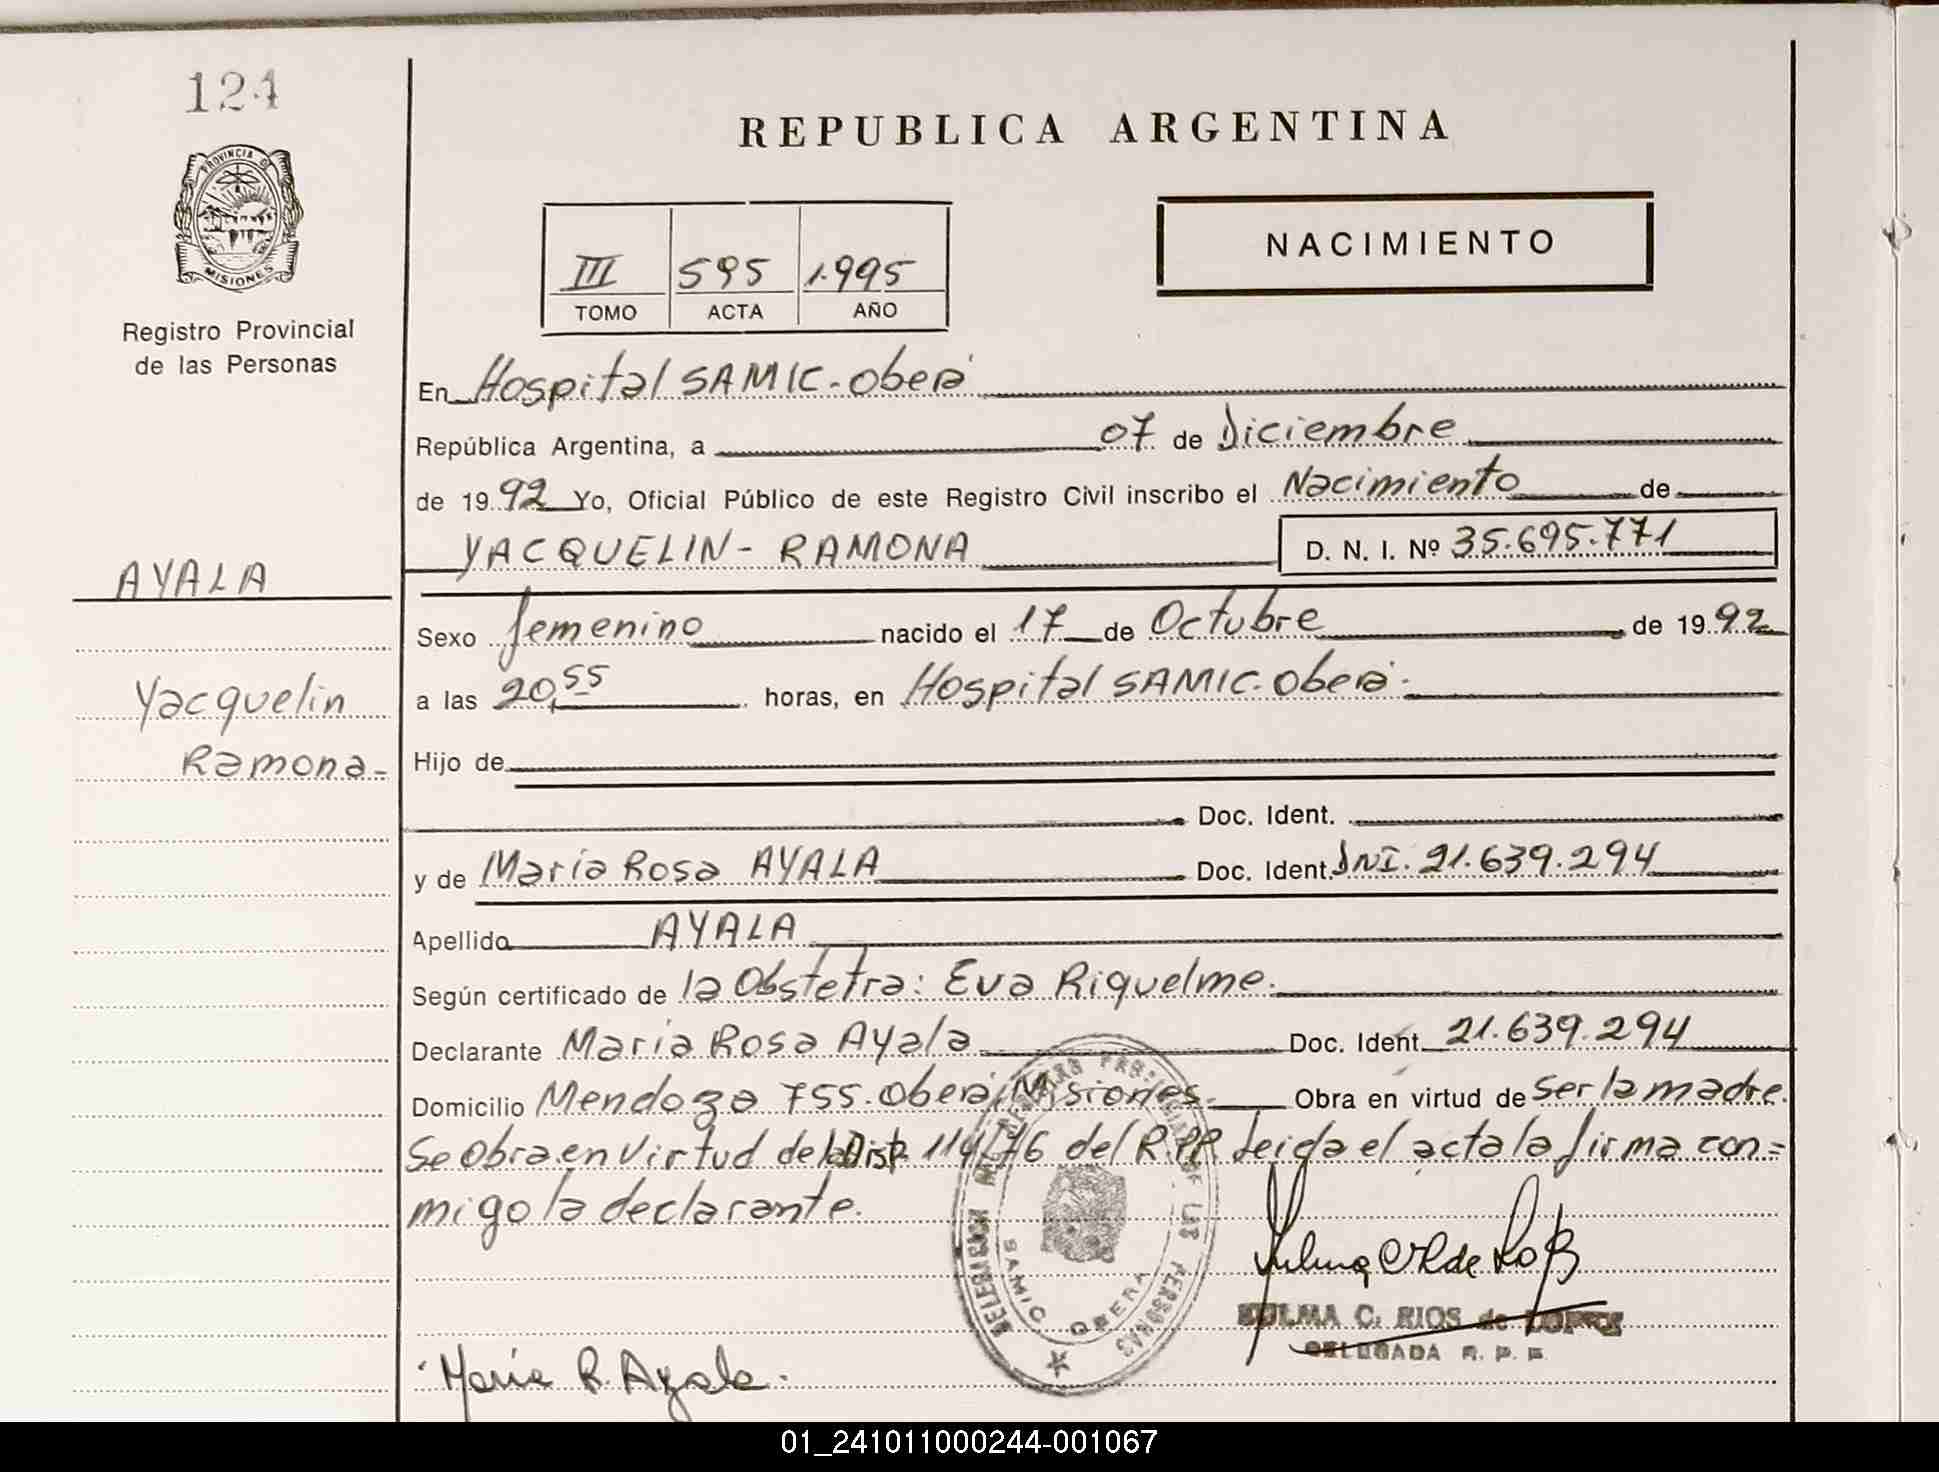 124
REPUBLICA ARGENTINA
PROVINCIA D
MISIONES
Registro Provincial
de las Personas
III 595 1.995
TOMO ACTA AÑO
NACIMIENTO
En Hospital SAMIC. Oberá
República Argentina, a 07 de Diciembre
de 1992 Yo, Oficial Público de este Registro Civil inscribo el Nacimiento de
YACQUELIN - RAMONA D. N. I. Nº 35.695.771
AYALA
Sexo femenino nacido el 17 de Octubre de 1992
Yacquelin
a las 20,55 horas, en Hospital SAMIC. Oberá.
Ramona-
Hijo de
Doc. Ident.
y de María Rosa AYALA Doc. Ident. DNI. 21.639.294
Apellido AYALA
Según certificado de la Obstetra: Eva Riquelme.
Declarante María Rosa Ayala Doc. Ident. 21.639.294
Domicilio Mendoza 755. Oberá, Misiones. Obra en virtud de Ser la madre.
Se Obra en Virtud de la Disp. 114/76 del R.PP. leida el acta la firma con=
migo la declarante.
SAMIC OBERA
LAS PERSONAS
ZULMA C. RIOS de LOPEZ
DELEGADA R. P. P.
María R. Ayala.
01_241011000244-001067